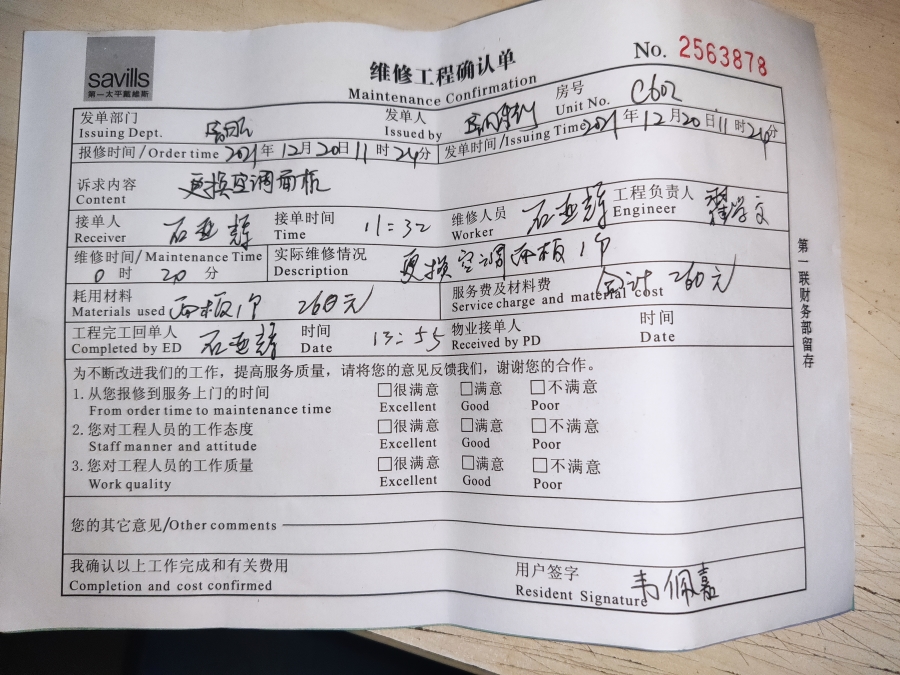 savills
第一太平戴维斯
维修工程确认单
Maintenance Confirmation
No. 2563878
发单部门
Issuing Dept.
发单人
Issued by
房号
Unit No. C602
报修时间/Order time 2021年12月20日11时24分
发单时间/Issuing Time 2021年12月20日11时24分
诉求内容 更换空调面板
Content
接单人 石亚辉
Receiver
接单时间 11:32
Time
维修人员 石亚辉
Worker
工程负责人
Engineer
维修时间/Maintenance Time
0时20分
实际维修情况 更换空调面板1个
Description
耗用材料
Materials used 面板1个 260元
服务费及材料费 合计260元
Service charge and material cost
工程完工回单人 石亚辉
Completed by ED
时间 13:55
Date
物业接单人
Received by PD
时间
Date
为不断改进我们的工作，提高服务质量，请将您的意见反馈我们，谢谢您的合作。
1.从您报修到服务上门的时间 □很满意 □满意 □不满意
From order time to maintenance time Excellent Good Poor
2.您对工程人员的工作态度 □很满意 □满意 □不满意
Staff manner and attitude Excellent Good Poor
3.您对工程人员的工作质量 □很满意 □满意 □不满意
Work quality Excellent Good Poor
您的其它意见/Other comments
我确认以上工作完成和有关费用
Completion and cost confirmed
用户签字 韦佩嘉
Resident Signature
第一联财务部留存